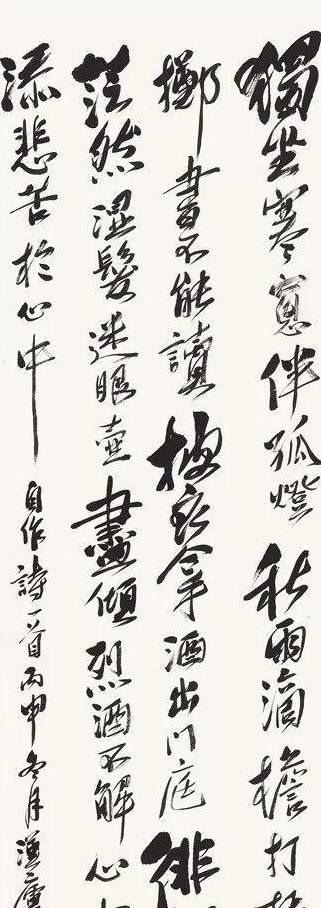 獨坐寒窗伴孤燈秋雨滴檐打
擲書不能讀披衣拿酒出門庭徘
茫然濕髮迷眼壺盡傾烈酒不解心
添悲苦於心中
自作詩一首丙申冬月